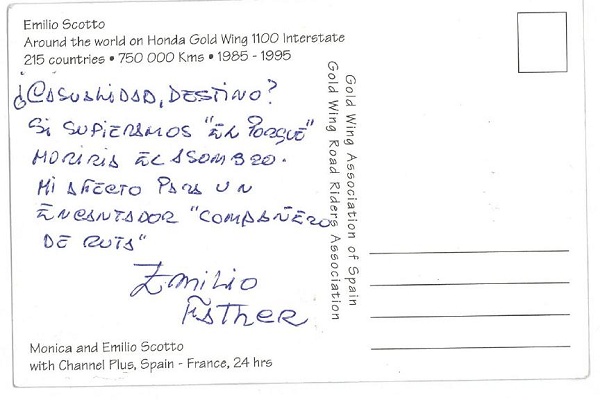 Emilio Scotto
Around the world on Honda Gold Wing 1100 Interstate
215 countries • 750 000 Kms • 1985 - 1995
¿CASUALIDAD, DESTINO?
SI SUPIERAMOS "EL PORQUÉ"
MORIRIA EL ASOMBRO.
MI AFECTO PARA UN
ENCANTADOR "COMPAÑERO
DE RUTA"
EMILIO
ESTHER
Monica and Emilio Scotto
with Channel Plus, Spain - France, 24 hrs
Gold Wing Association of Spain
Gold Wing Road Riders Association